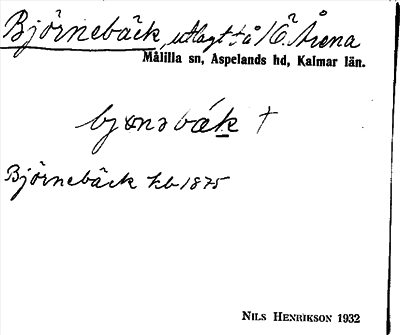 Björnebäck, utlagt t å /Ö. Årena
Målilla sn, Aspelands hd, Kalmar län.
bjɷnəbák †
Björnebäck kb 1875
NILS HENRIKSON 1932